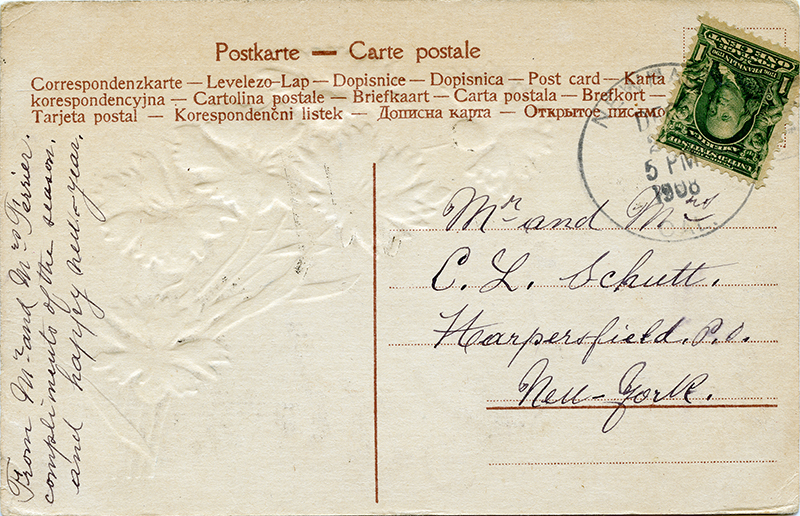 Postkarte — Carte postale
Correspondenzkarte — Levelezo-Lap — Dopisnice — Dopisnica — Post card — Karta
korespondencyjna — Cartolina postale — Briefkaart — Carta postala — Brefkort —
Tarjeta postal — Korespondenčni listek — Дописна карта — Открытое письмо
5 PM
1908
CAL.
Mr and Mrs
C. L. Schutt.
Harpersfield. P.O.
New-York.
From Mr and Mrs Ferrier.
compliments of the season.
and happy new-year.
UNITED STATES OF
AMERICA
1 1
ONE CENT